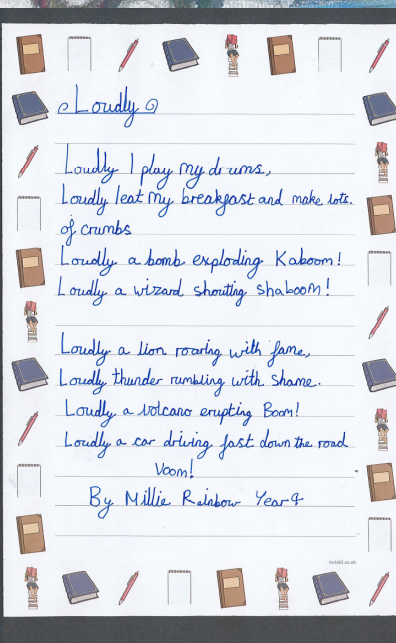 Loudly
Loudly I play my drums,
Loudly I eat my breakfast and make lots.
of crumbs
Loudly a bomb exploding Kaboom!
Loudly a wizard shouting shaboom!
Loudly a lion roaring with fame,
Loudly thunder rumbling with shame.
Loudly a volcano erupting Boom!
Loudly a car driving fast down the road
Voom!
By Millie Rainbow Year 4
twinkl.co.uk